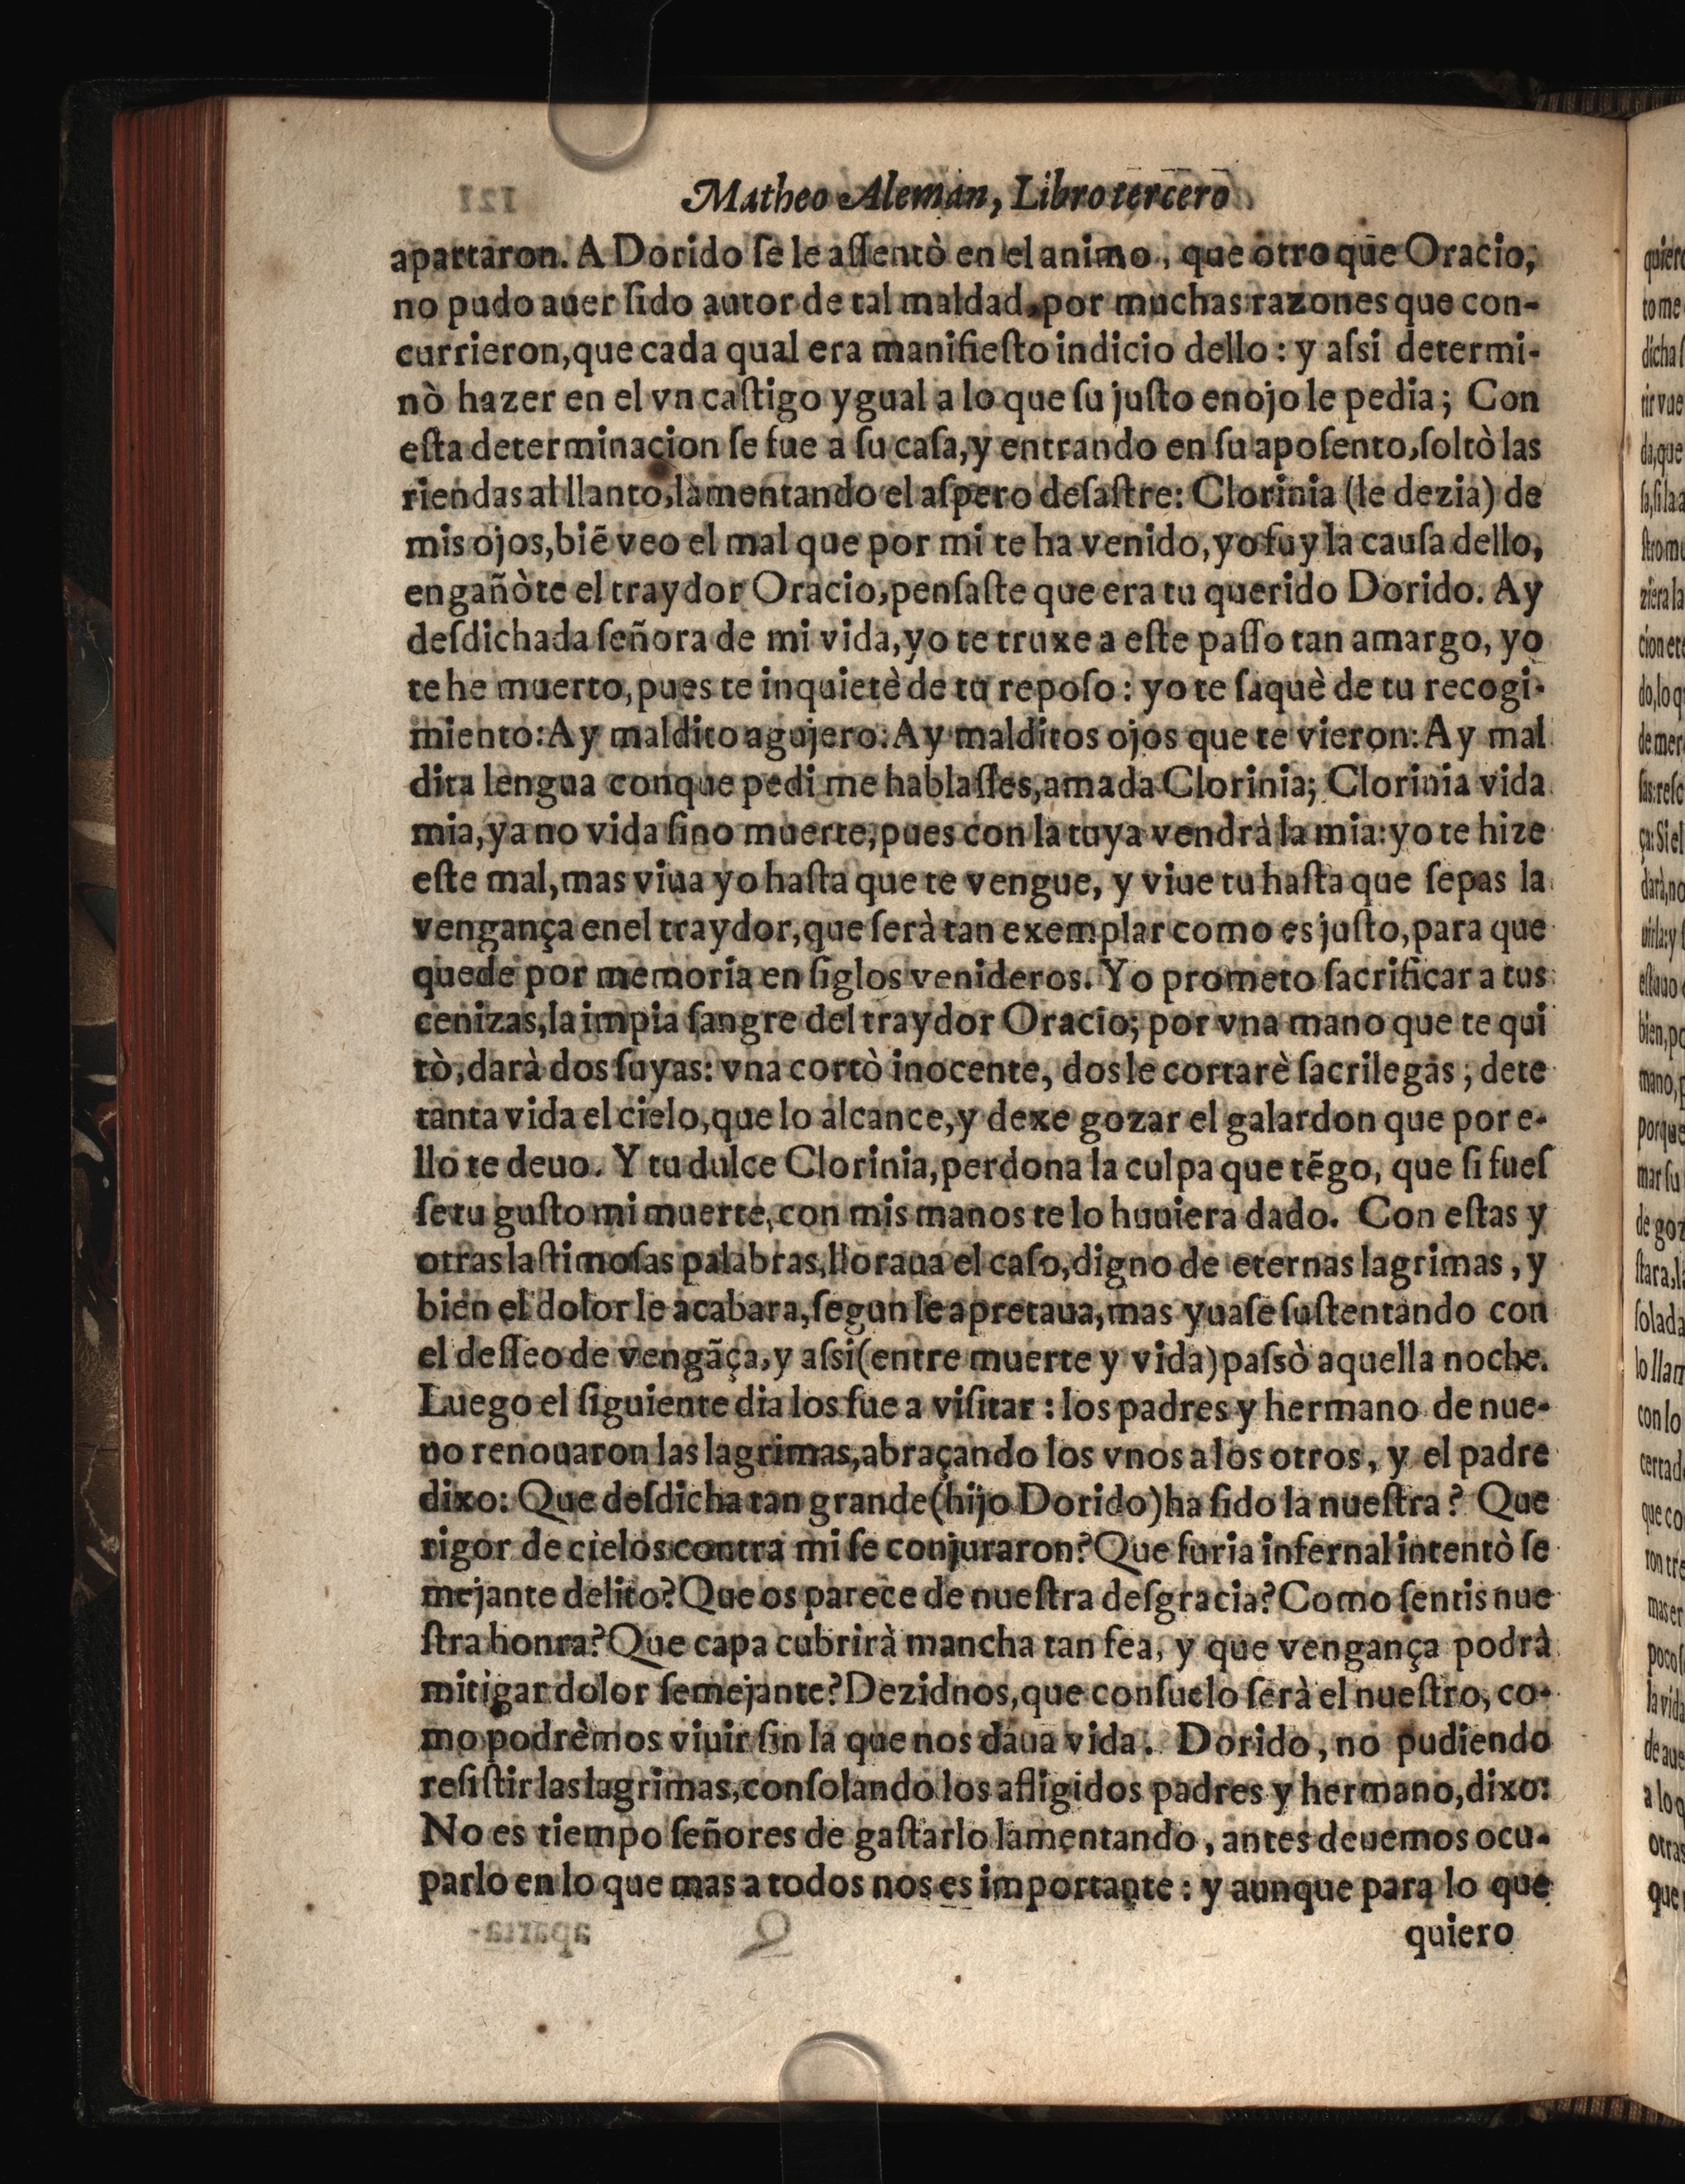 Matheo Aleman, Libro tercero
apartaron. A Dorido ſe le aſſentò en el animo, que otro que Oracio,
no pudo auer ſido autor de tal maldad, por muchas razones que con-
currieron, que cada qual era manifieſto indicio dello: y aſsi determi-
nò hazer en el vn caſtigo ygual a lo que ſu juſto enojo le pedia; Con
eſta determinacion ſe fue a ſu caſa, y entrando en ſu apoſento, ſoltò las
riendas al llanto, lamentando el aſpero deſaſtre: Clorinia (le dezia) de
mis ojos, biẽ veo el mal que por mi te ha venido, yo fuy la cauſa dello,
engañòte el traydor Oracio, penſaſte que era tu querido Dorido. Ay
deſdichada ſeñora de mi vida, yo te truxe a eſte paſſo tan amargo, yo
te he muerto, pues te inquietè de tu repoſo: yo te ſaquè de tu recogi-
miento: Ay maldito agujero: Ay malditos ojos que te vieron: Ay mal
dita lengua conque pedi me hablaſſes, amada Clorinia; Clorinia vida
mia, ya no vida ſino muerte, pues con la tuya vendrà la mia: yo te hize
eſte mal, mas viua yo haſta que te vengue, y viue tu haſta que ſepas la
vengança enel traydor, que ſerà tan exemplar como es juſto, para que
quede por memoria en ſiglos venideros. Yo prometo ſacrificar a tus
cenizas, la impia ſangre del traydor Oracio; por vna mano que te qui
tò, darà dos ſuyas: vna cortò inocente, dos le cortarè ſacrilegas; dete
tanta vida el cielo, que lo alcance, y dexe gozar el galardon que por e-
llo te deuo. Y tu dulce Clorinia, perdona la culpa que tẽgo, que ſi fueſ
ſe tu guſto mi muerte, con mis manos te lo huuiera dado. Con eſtas y
otras laſtimoſas palabras, lloraua el caſo, digno de eternas lagrimas, y
bien el dolor le acabara, ſegun le apretaua, mas yuaſe ſuſtentando con
el deſſeo de vengãça, y aſsi (entre muerte y vida) paſsò aquella noche.
Luego el ſiguiente dia los fue a viſitar: los padres y hermano de nue-
uo renouaron las lagrimas, abraçando los vnos a los otros, y el padre
dixo: Que deſdicha tan grande (hijo Dorido) ha ſido la nueſtra? Que
rigor de cielos contra mi ſe conjuraron? Que furia infernal intentò ſe
mejante delito? Que os parece de nueſtra deſgracia? Como ſentis nue
ſtra honra? Que capa cubrirà mancha tan fea, y que vengança podrà
mitigar dolor ſemejante? Dezidnos, que conſuelo ſerà el nueſtro, co-
mo podrèmos viuir ſin la que nos daua vida. Dorido, no pudiendo
reſiſtir las lagrimas, conſolando los afligidos padres y hermano, dixo:
No es tiempo ſeñores de gaſtarlo lamentando, antes deuemos ocu-
parlo en lo que mas a todos nos es importante: y aunque para lo que
quiero